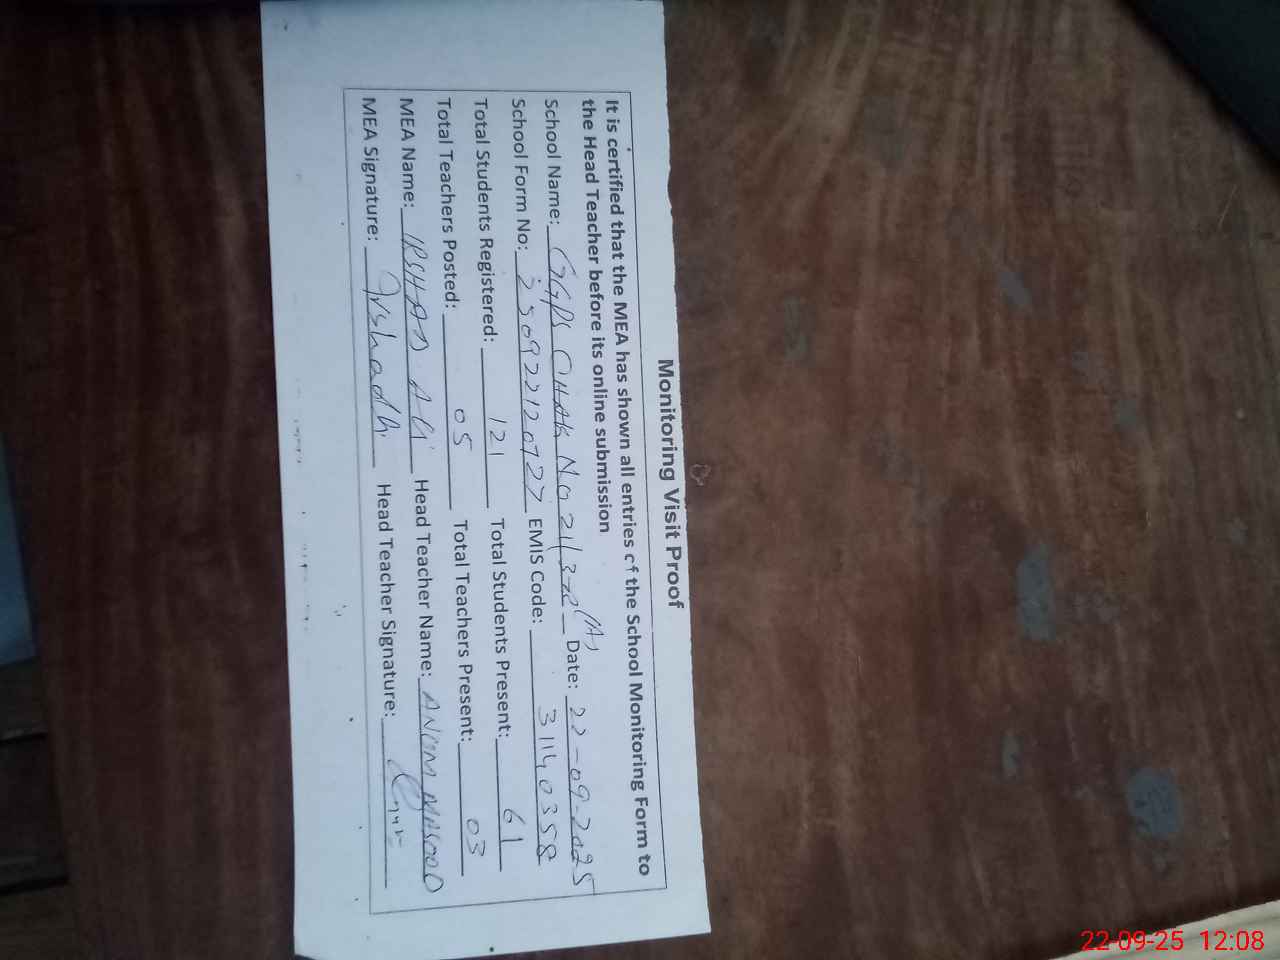 Monitoring Visit Proof
It is certified that the MEA has shown all entries of the School Monitoring Form to
the Head Teacher before its online submission
School Name: GGPS CHAK No 21/3-R (A) Date: 22-09-2025
School Form No: 250922120727 EMIS Code: 31140358
Total Students Registered: 121 Total Students Present: 61
Total Teachers Posted: 05 Total Teachers Present: 03
MEA Name: IRSHAD ALI Head Teacher Name: ANUM MASOOD
MEA Signature: Head Teacher Signature:
22-09-25 12:08